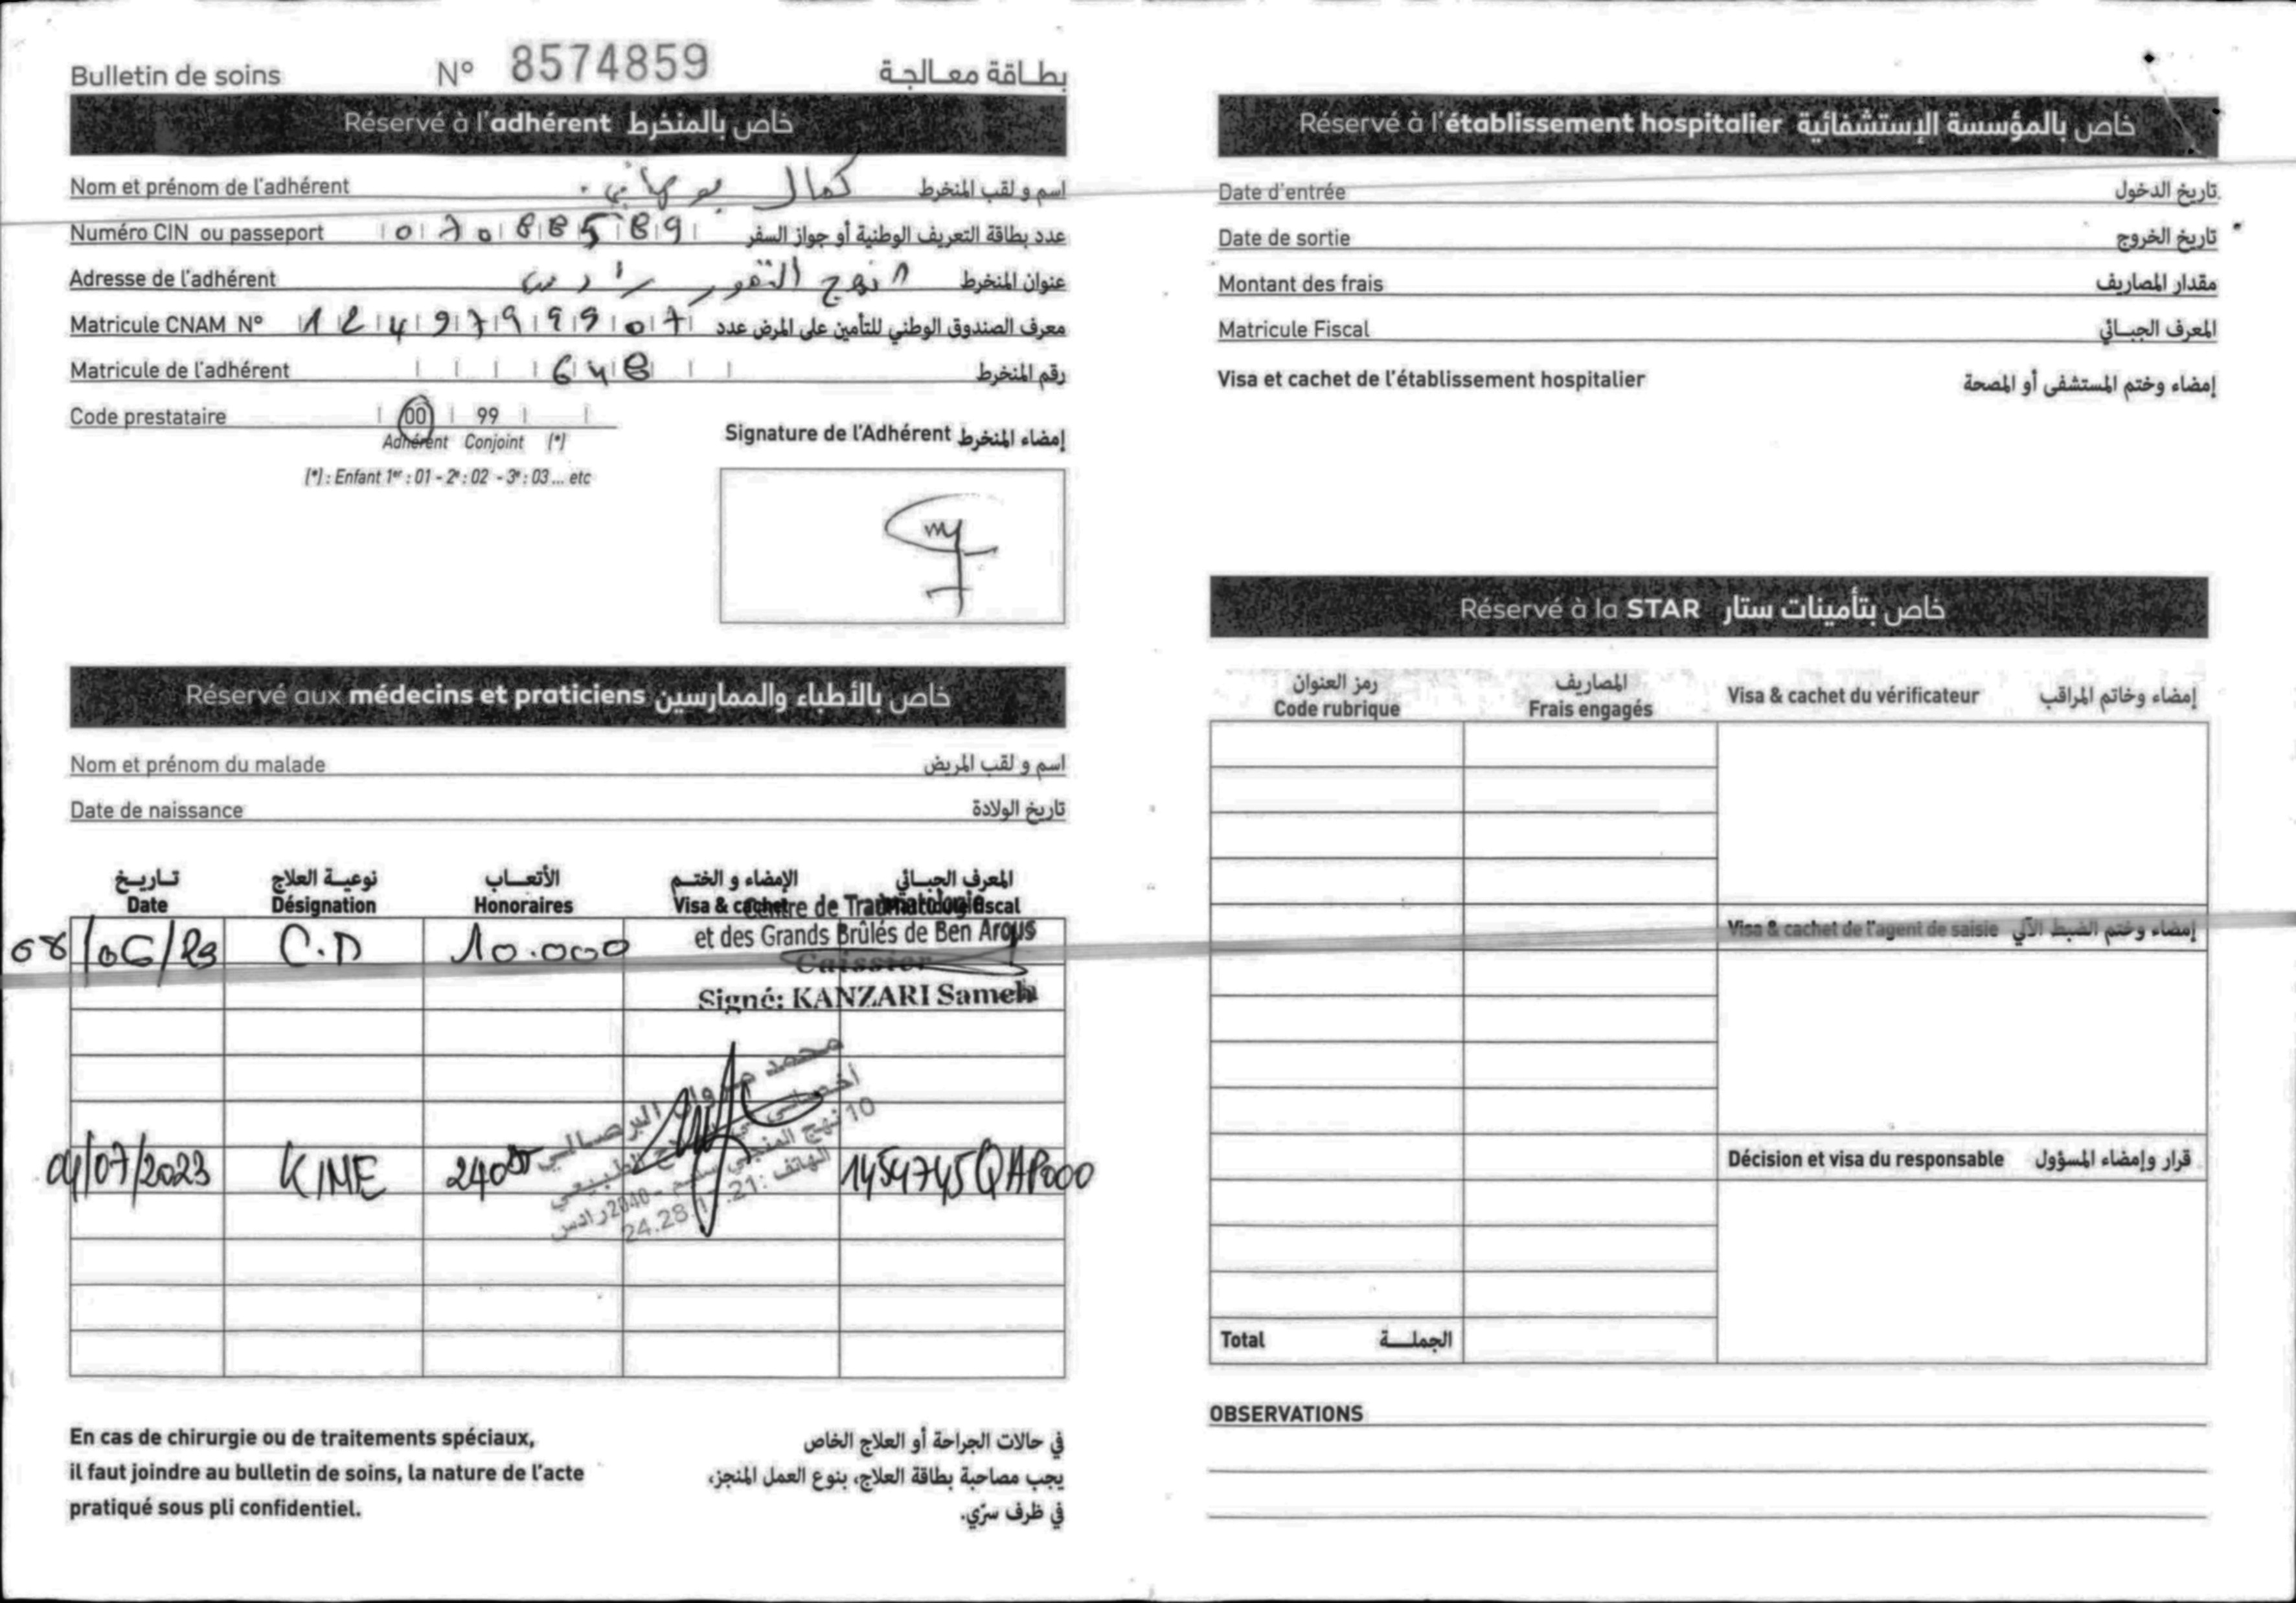 Bulletin de soins N° 8574859 بطاقة معالجة
Réservé à l'adhérent خاص بالمنخرط
Nom et prénom de l'adhérent كمال اسم و لقب المنخرط
Numéro CIN ou passeport 07088589 عدد بطاقة التعريف الوطنية أو جواز السفر
Adresse de l'adhérent نهج رادس عنوان المنخرط
Matricule CNAM N° 1249799907 معرف الصندوق الوطني للتأمين على المرض عدد
Matricule de l'adhérent 648 رقم المنخرط
Code prestataire 00 99
Adhérent Conjoint (*)
(*) : Enfant 1er : 01 - 2e : 02 - 3e : 03 ... etc
Signature de l'Adhérent إمضاء المنخرط
Réservé aux médecins et praticiens خاص بالأطباء والممارسين
Nom et prénom du malade اسم و لقب المريض
Date de naissance تاريخ الولادة
تاريخ نوعية العلاج الأتعاب الإمضاء و الختم المعرف الجبائي
Date Désignation Honoraires Visa & cachet
Centre de Traumatologie
et des Grands Brûlés de Ben Arous
08/06/23 C.D 10.000
Caissier
Signé: KANZARI Sameh
محمد مروان البرصالي
أخصائي في العلاج الطبيعي
10 نهج المنجي سليم - 2040 رادس
الهاتف :
04/07/2023 KINE 240DT 1454745QAP000
En cas de chirurgie ou de traitements spéciaux,
il faut joindre au bulletin de soins, la nature de l'acte
pratiqué sous pli confidentiel.
في حالات الجراحة أو العلاج الخاص
يجب مصاحبة بطاقة العلاج، بنوع العمل المنجز،
في ظرف سرّي.
Réservé à l'établissement hospitalier خاص بالمؤسسة الإستشفائية
Date d'entrée تاريخ الدخول
Date de sortie تاريخ الخروج
Montant des frais مقدار المصاريف
Matricule Fiscal المعرف الجبائي
Visa et cachet de l'établissement hospitalier إمضاء وختم المستشفى أو المصحة
Réservé à la STAR خاص بتأمينات ستار
رمز العنوان المصاريف
Code rubrique Frais engagés Visa & cachet du vérificateur إمضاء وخاتم المراقب
Visa & cachet de l'agent de saisie إمضاء وختم الضبط الآلي
Décision et visa du responsable قرار وإمضاء المسؤول
Total الجملة
OBSERVATIONS